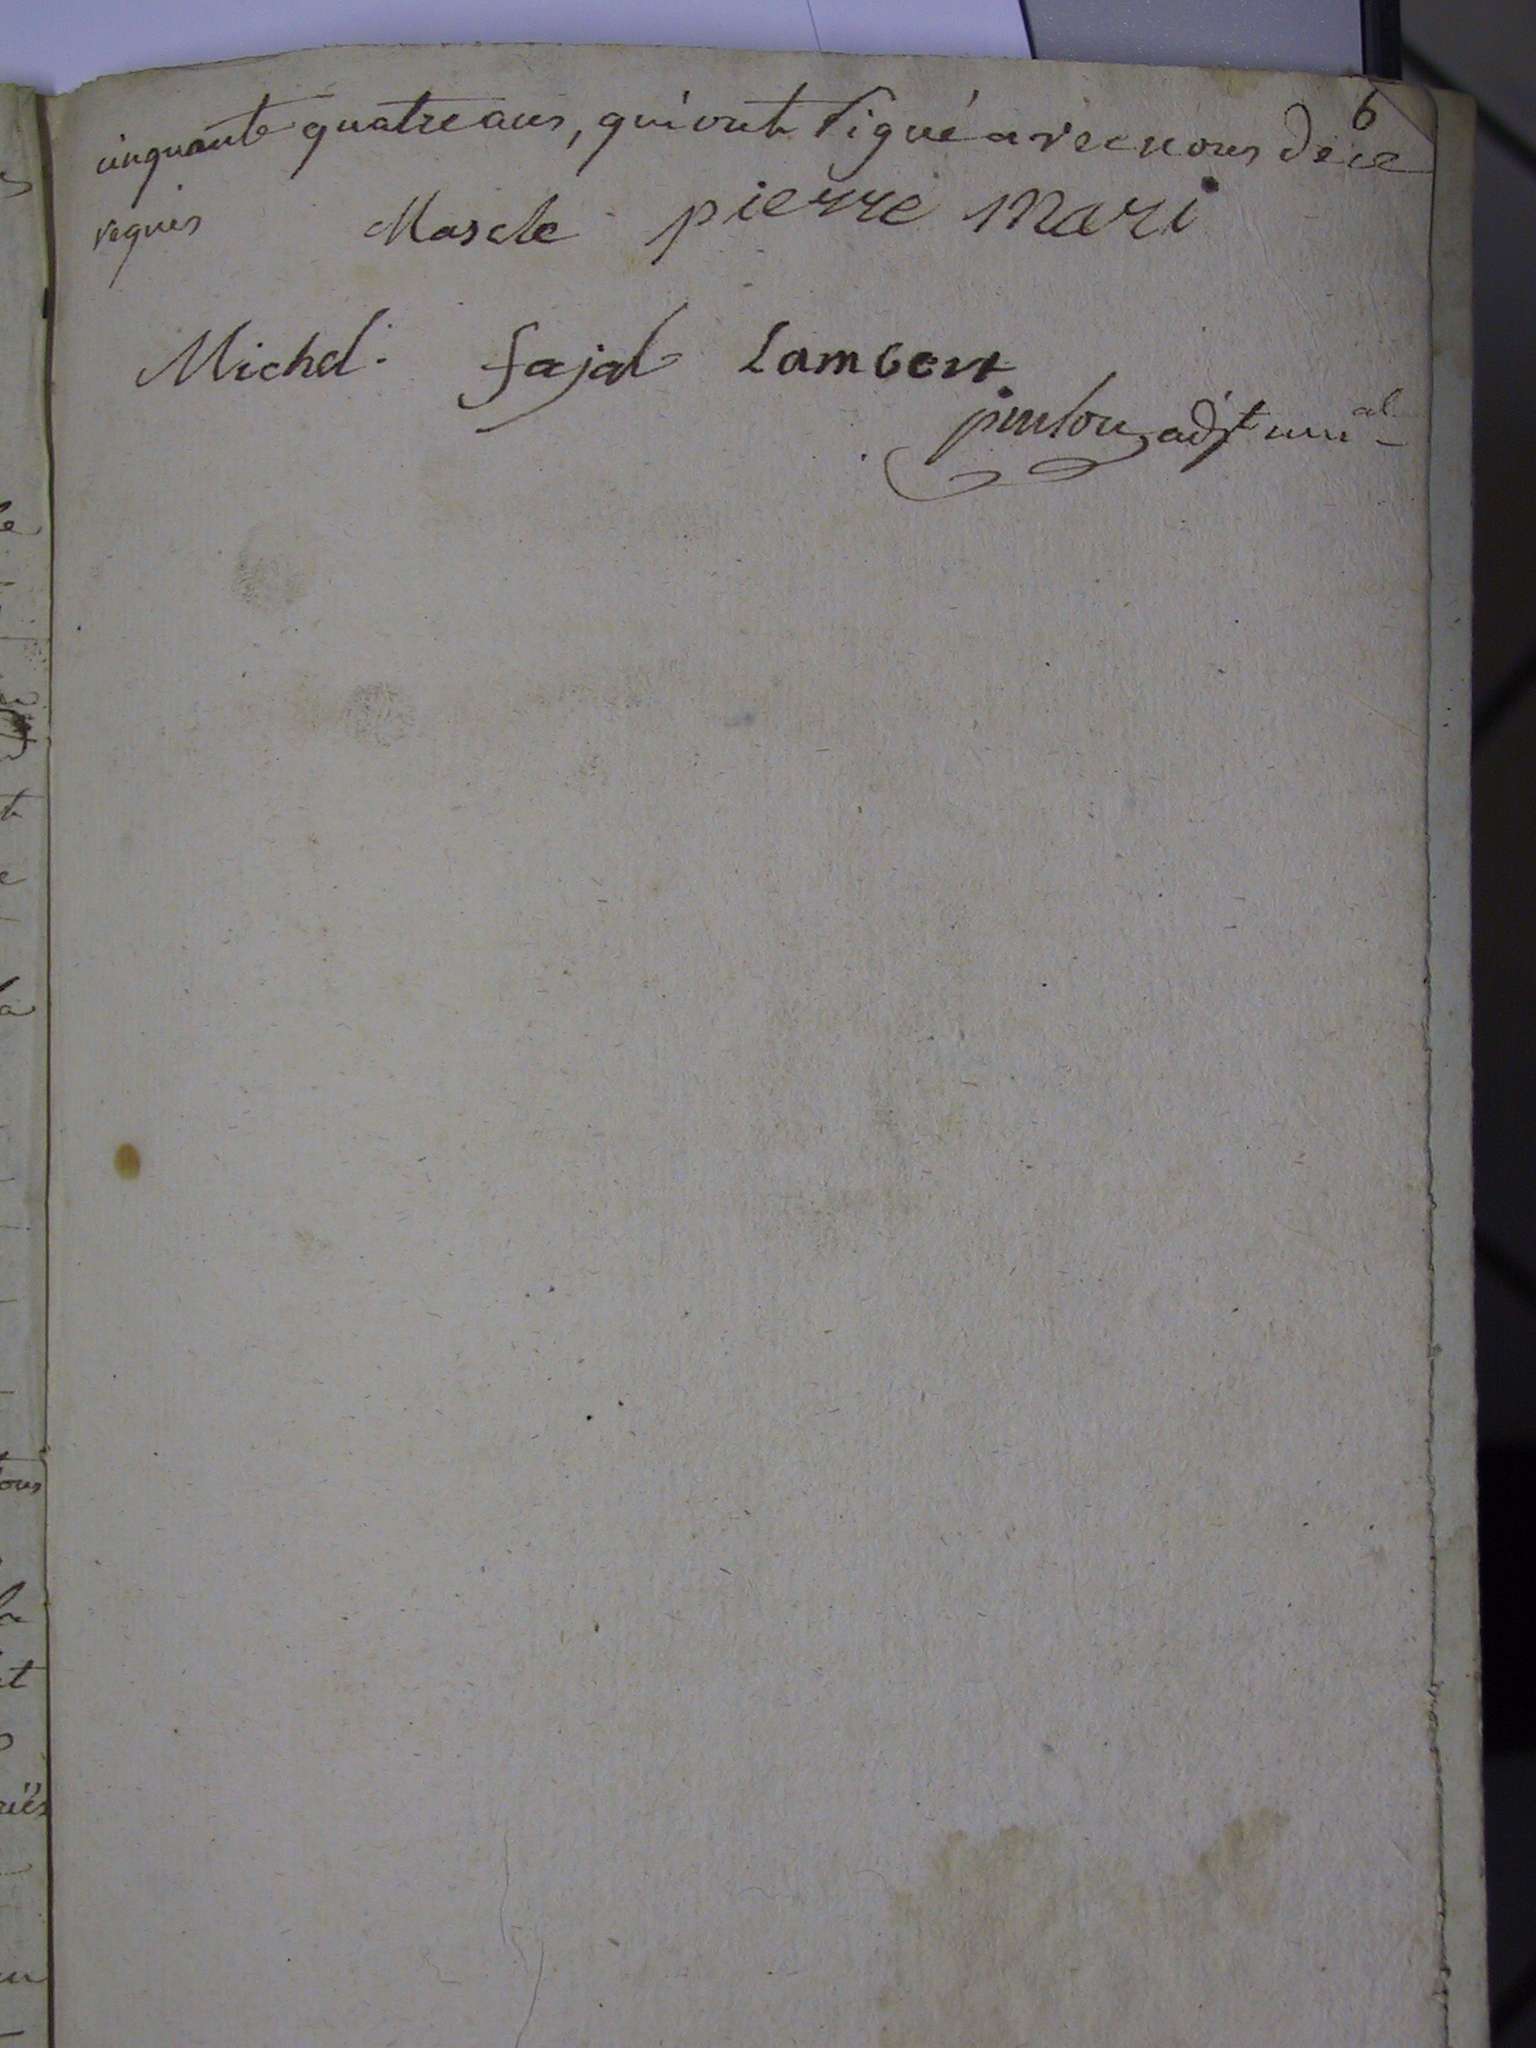 6
cinquante quatre ans, qui ont signé avec nous de ce
requis Mascle pierre Mari
Michel fajal Lambert
adjt mu.al